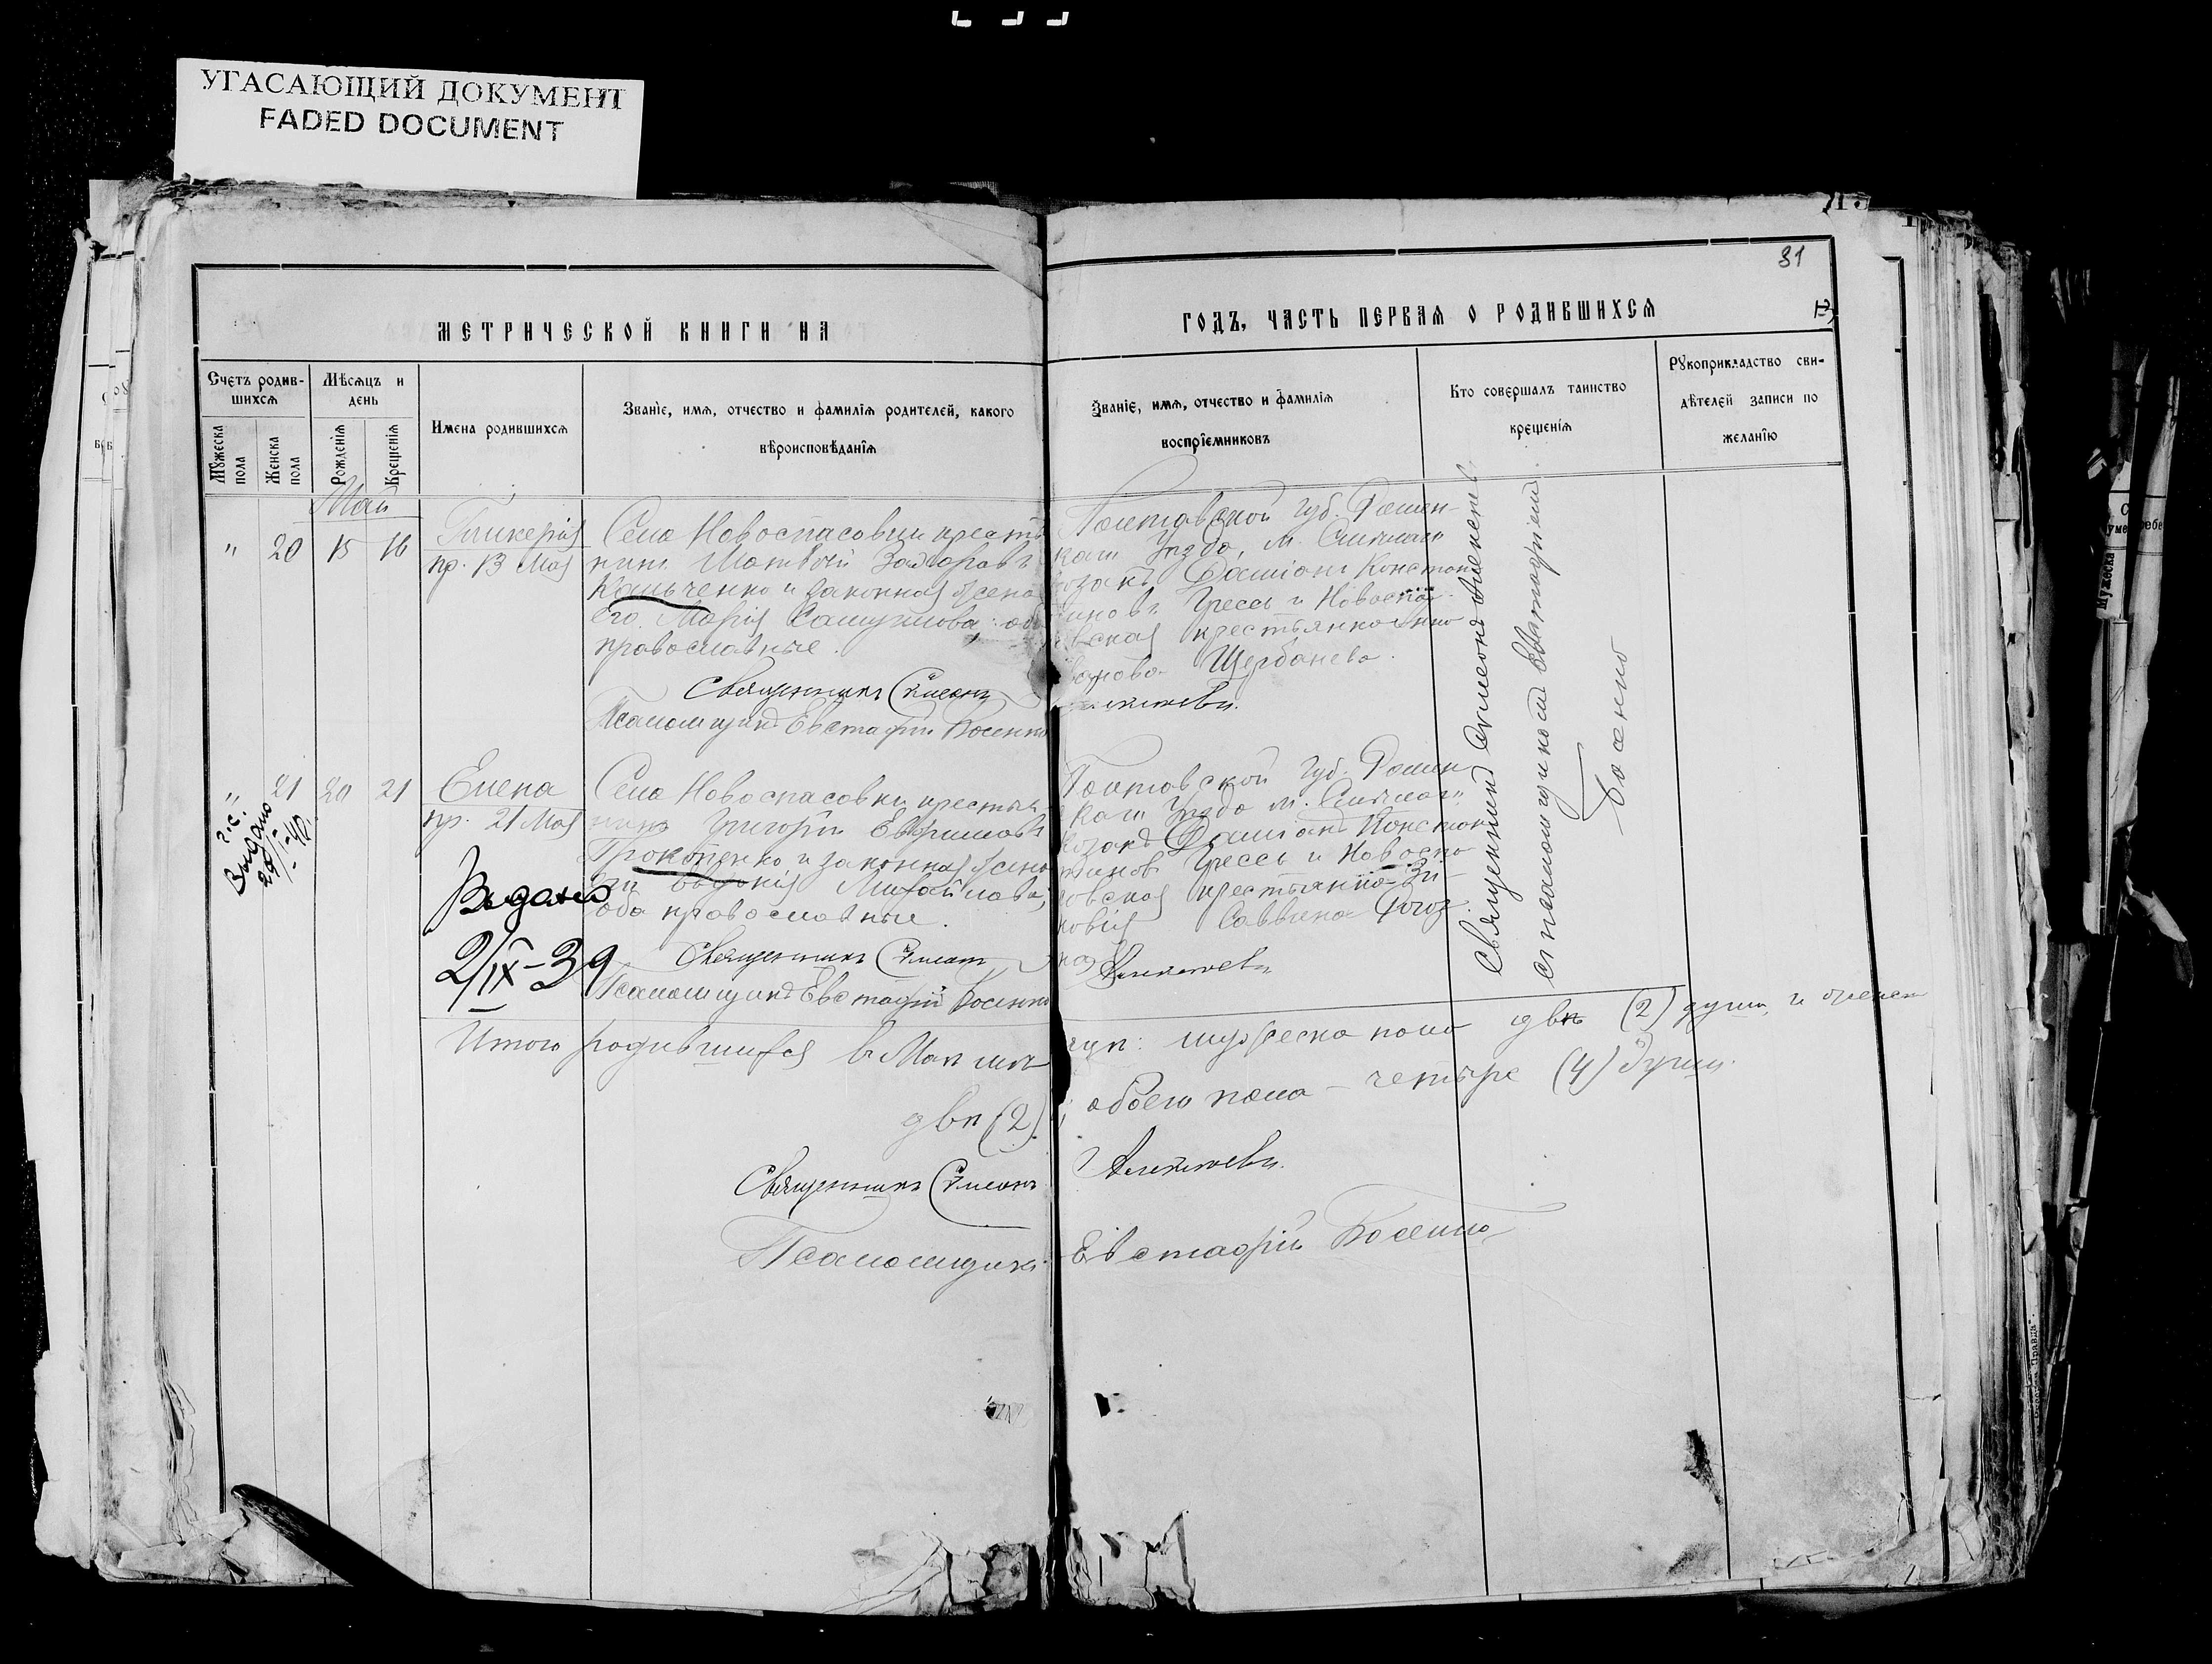 УГАСАЮЩИЙ ДОКУМЕНТ
FADED DOCUMENT
31
МЕТРИЧЕСКОЙ КНИГИ НА
ГОДЪ, ЧАСТЬ ПЕРВАЯ О РОДИВШИХСЯ
Счетъ родив-
шихся
Мѣсяцъ и
день
Мужеска
пола
Женска
пола
Рожденія
Крещенія
Имена родившихся
Званіе, имя, отчество и фамилія родителей, какого
вѣроисповѣданія
Званіе, имя, отчество и фамилія
воспріемниковъ
Кто совершалъ таинство
крещенія
Рукоприкладство сви-
дѣтелей записи по
желанію
Май
" 20 15 16
Гликерія
пр. 13 Мая
Села Новоспасовки крестья
нинъ Матвѣй
и законная жена
его Марія Самуилова: оба
православные.
Священникъ Симеонъ
Псаломщикъ Евстафій Косенко
Полтавской губ. Ромен-
скаго уѣзда, м. Смѣлаго
козакъ Даміанъ Констан
тиновъ Гресь и Новоспа-
совская крестьянка Анна
Иванова Щербанева.
Алексѣевъ.
Священникъ Симеонъ Алексѣевъ
съ псаломщикомъ Евстафіемъ
Косенко
" 21 20 21
Елена
пр. 21 Мая
Выдано
2/IX-39
Села Новоспасовки крестья-
нинъ Григорій Евфимовъ
Прокопенко и законная жена
его Евфимія Михайлова,
оба православные.
Священникъ Симеонъ
Псаломщикъ Евстафій Косенко
Полтавской губ. Ромен
скаго уѣзда м. Смѣлаго,
козакъ Даміанъ Констан
тиновъ Гресь и Новоспа
совская крестьянка Зи-
новія Саввина
Алексѣевъ
Выдано
Итого родившихся въ Маѣ мѣс
яцѣ: мужеска пола двѣ (2) души, и женска
двѣ (2)
; обоего пола – четыре (4) души.
Священникъ Симеонъ Алексѣевъ.
Псаломщикъ Евстафій Косенко